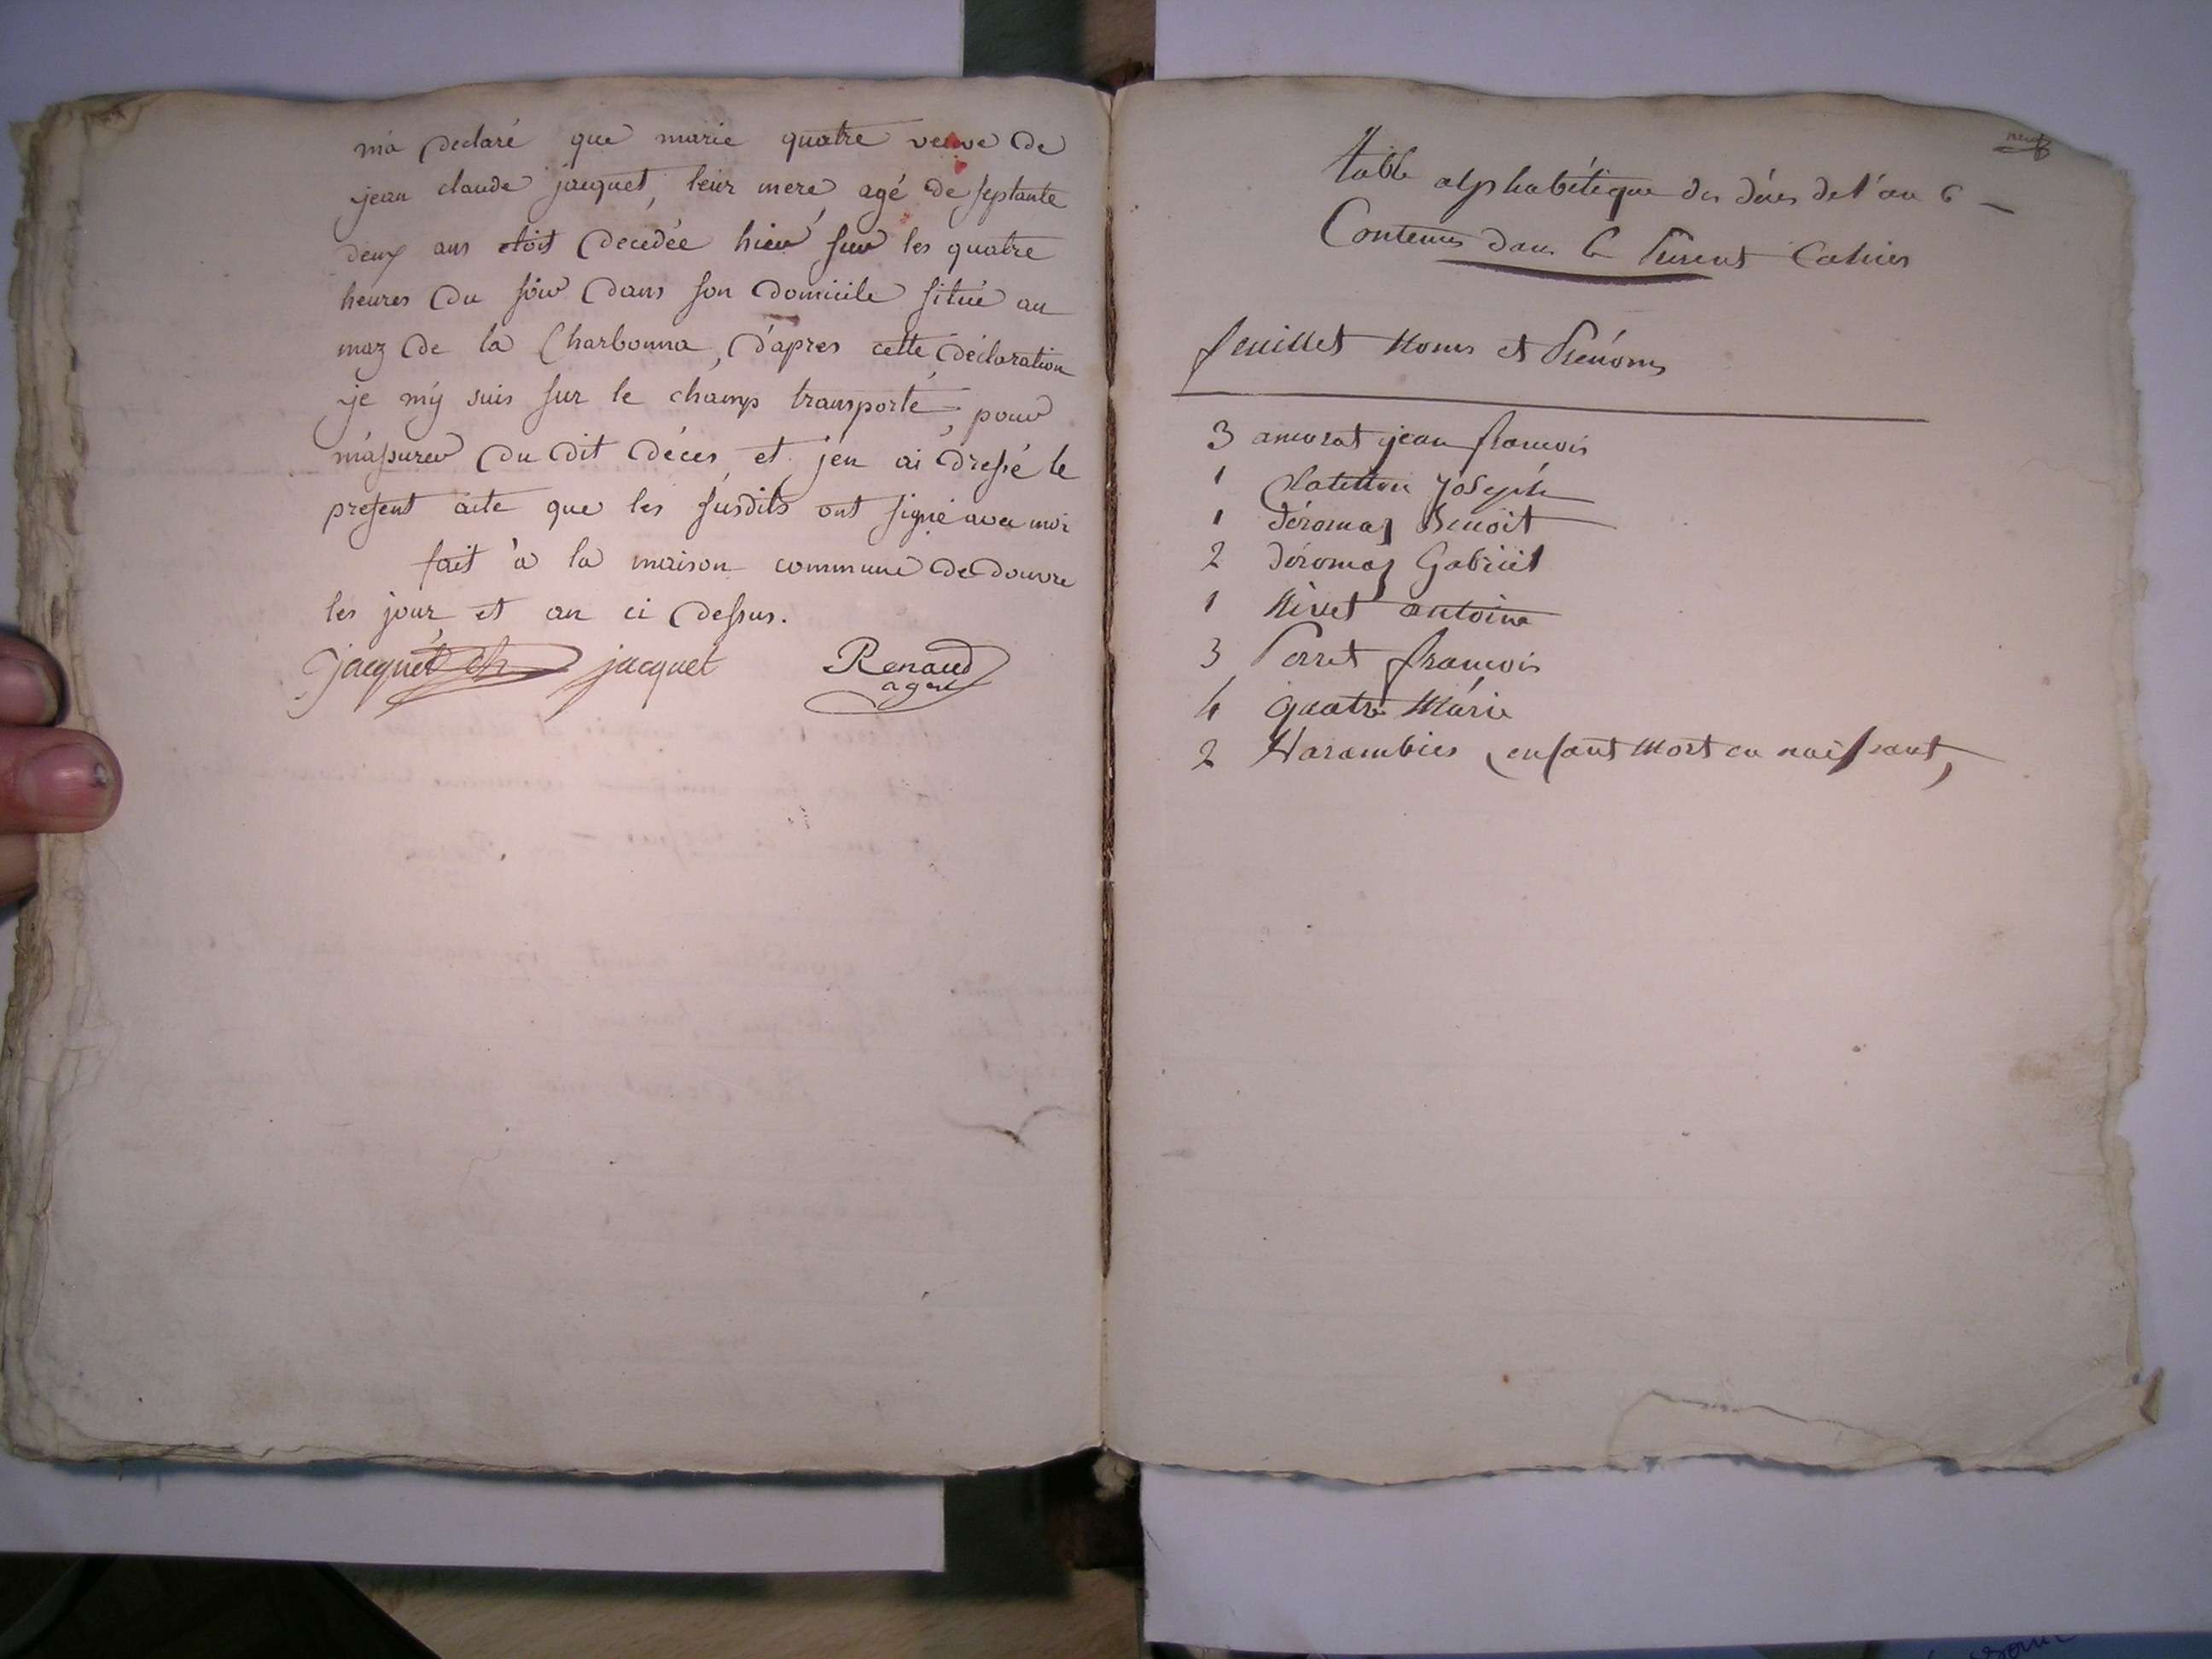 m'a declaré que marie quatre veuve de
jean claude jacquet, leur mere agé de septante
deux ans etoit decedée hier sur les quatre
heures du soir dans son domicile situé au
maz de la Charbonna, d'apres cette déclaration
je m'y suis sur le champ transporté, pour
m'assurer du dit déces et j'en ai dressé le
present acte que les susdits ont signé avec moi
fait à la maison commune de douvre
les jour et an ci dessus.
jacquet jacquet Renaud
agent
neuf
table alphabétique des décès de l'an 6
Contenus dans le Présent Cahier
feuillet Noms et Prénoms
3 jean francois
1 Joseph
1 déromas Benoit
2 déromas Gabriel
1 Nivet antoine
3 Perret francois
4 quatre Marie
2 enfant mort en naissant,